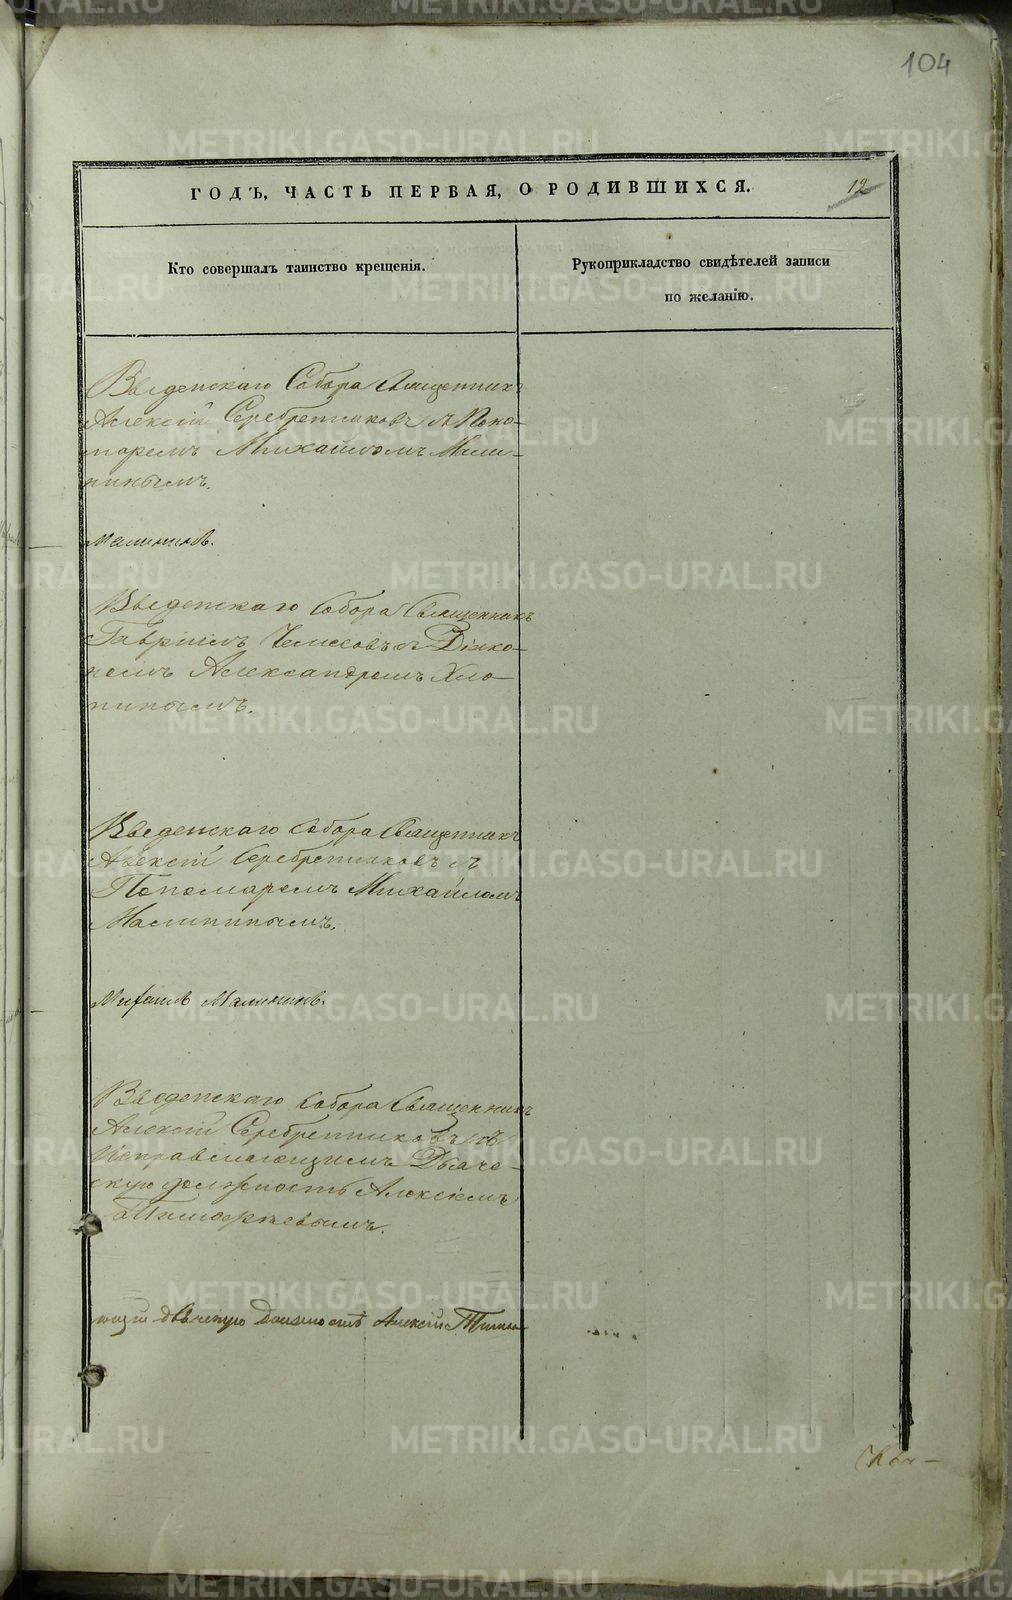 104
ГОДЪ, ЧАСТЬ ПЕРВАЯ, О РОДИВШИХСЯ.
12
Кто совершалъ таинство крещенія.
Рукоприкладство свидѣтелей записи
по желанію.
Введенскаго Собора Священникъ
Алексій Серебренниковъ съ Поно-
маремъ Михаиломъ Мали-
нинымъ.
Малининъ.
Введенскаго Собора Священникъ
Гавріилъ съ Діако-
номъ Александромъ Хло-
пинымъ.
Введенскаго Собора Священникъ
Алексій Серебренниковъ съ
Пономаремъ Михаиломъ
Малининымъ.
Михаилъ Малининъ.
Введенскаго Собора Священникъ
Алексій Серебренниковъ съ
Исправляющимъ Дьяче-
скую должность Алексіемъ
ющій дьяческую должность Алексій
METRIKI.GASO-URAL.RU